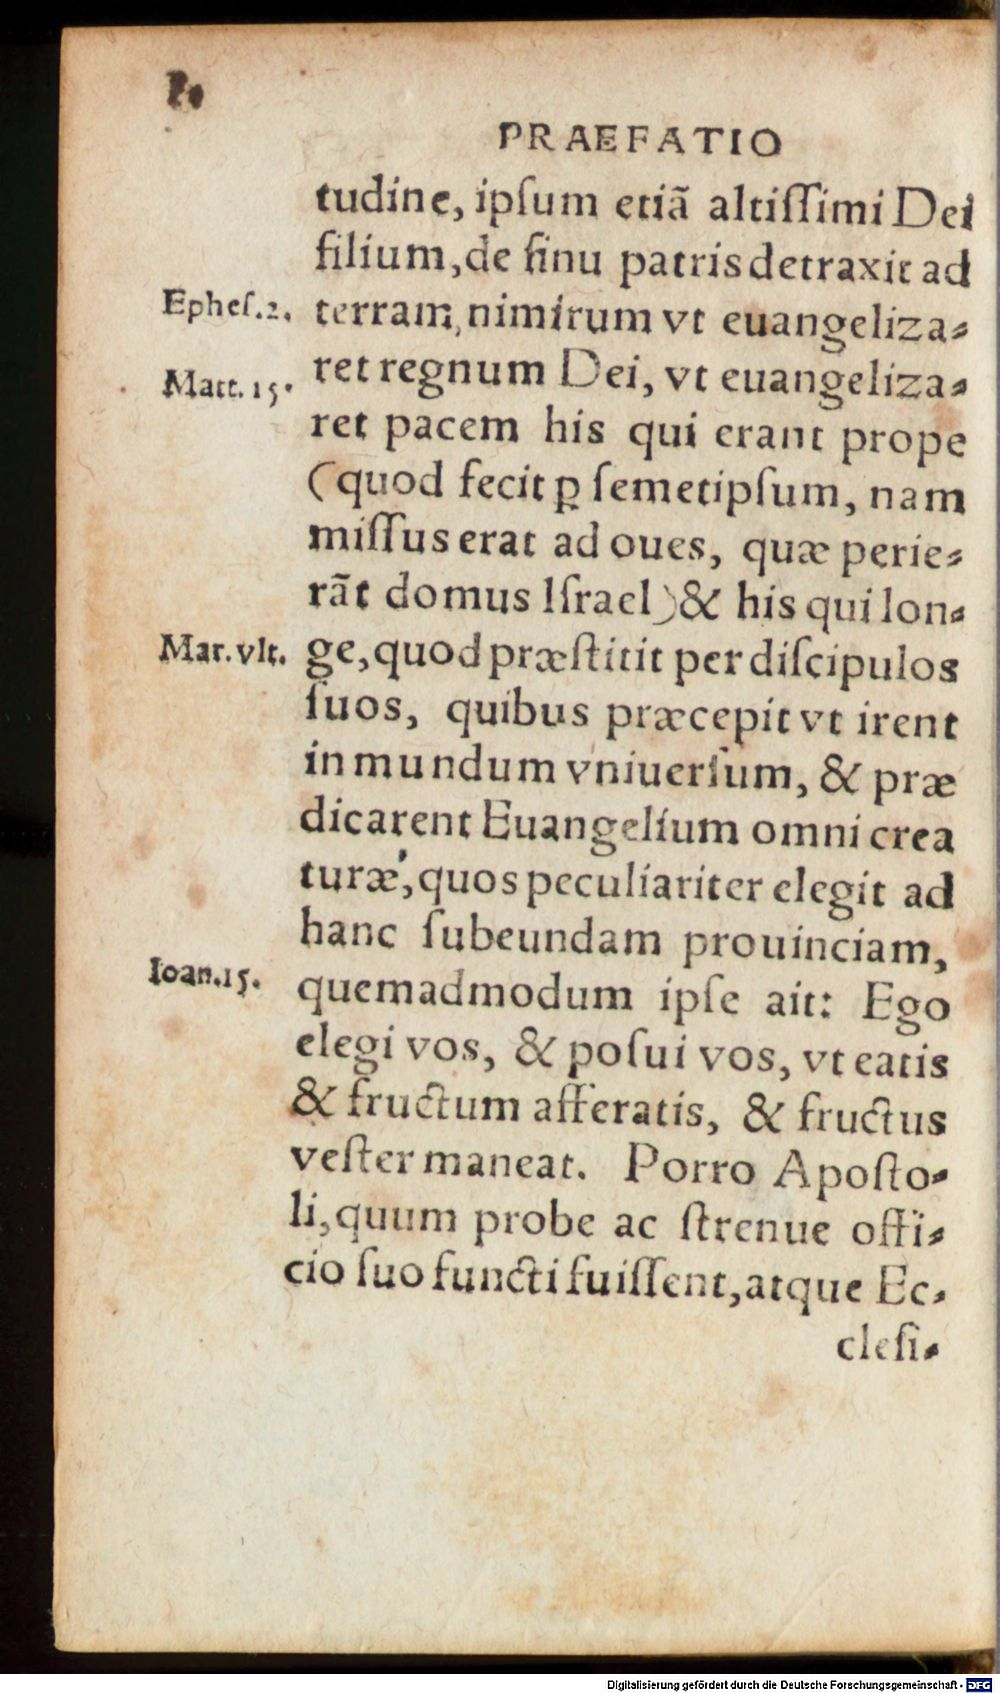 PRAEFATIO
tudine, ipſum etiã altiſſimi Dei
filium, de ſinu patris detraxit ad
Epheſ.2.
terram, nimirum vt euangeliza-
Matt. 15.
ret regnum Dei, vt euangeliza-
ret pacem his qui erant prope
(quod fecit ꝑ ſemetipſum, nam
miſſus erat ad oues, quæ perie-
rãt domus Iſrael) & his qui lon-
Mar. vlt.
ge, quod præſtitit per diſcipulos
ſuos, quibus præcepit vt irent
in mundum vniuerſum, & præ
dicarent Euangelium omni crea
turæ, quos peculiariter elegit ad
hanc ſubeundam prouinciam,
Ioan.15.
quemadmodum ipſe ait: Ego
elegi vos, & poſui vos, vt eatis
& fructum afferatis, & fructus
veſter maneat. Porro Apoſto-
li, quum probe ac ſtrenue offi-
cio ſuo functi fuiſſent, atque Ec-
cleſi-
Digitalisierung gefördert durch die Deutsche Forschungsgemeinschaft - DFG